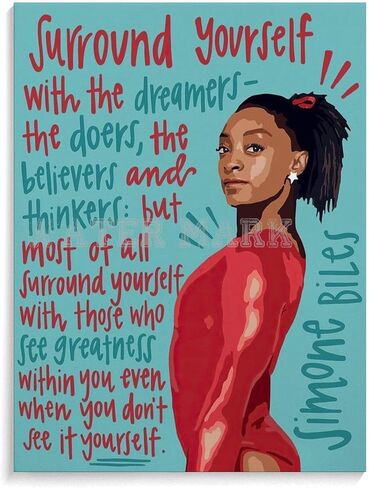 Surround Yourself
with the dreamers-
the doers, the
believers and
thinkers: but
most of all
surround yourself
with those who
see greatness
within you even
when you don't
see it yourself.
Simone Biles
WATER MARK